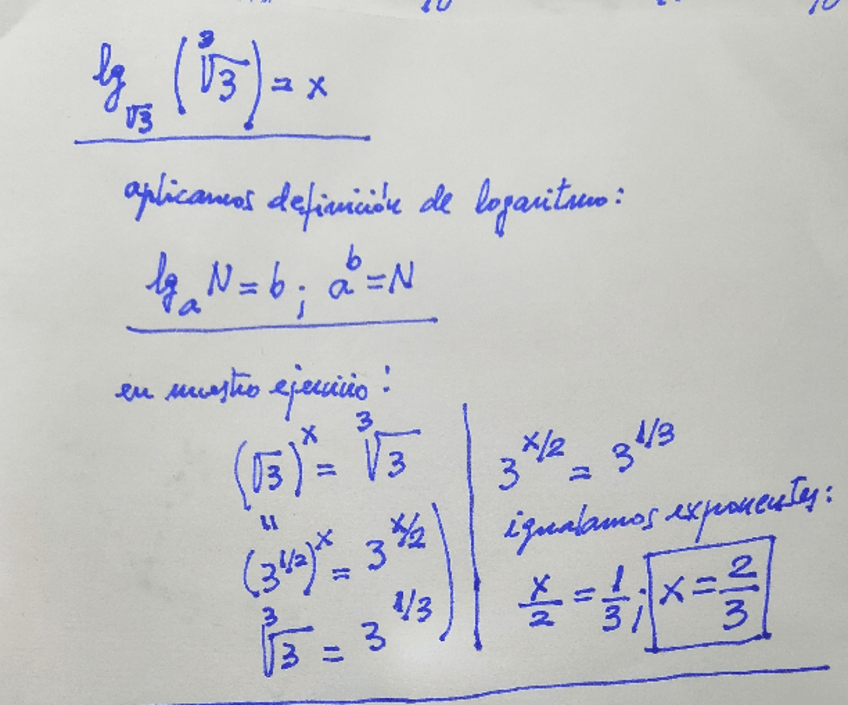 lg_√3 (∛3) = x
aplicamos definición de logaritmo:
lg_a N = b ; a^b = N
en nuestro ejercicio:
(√3)^x = ∛3
"
(3^1/2)^x = 3^x/2
∛3 = 3^1/3
3^x/2 = 3^1/3
igualamos exponentes:
x/2 = 1/3 ; x = 2/3